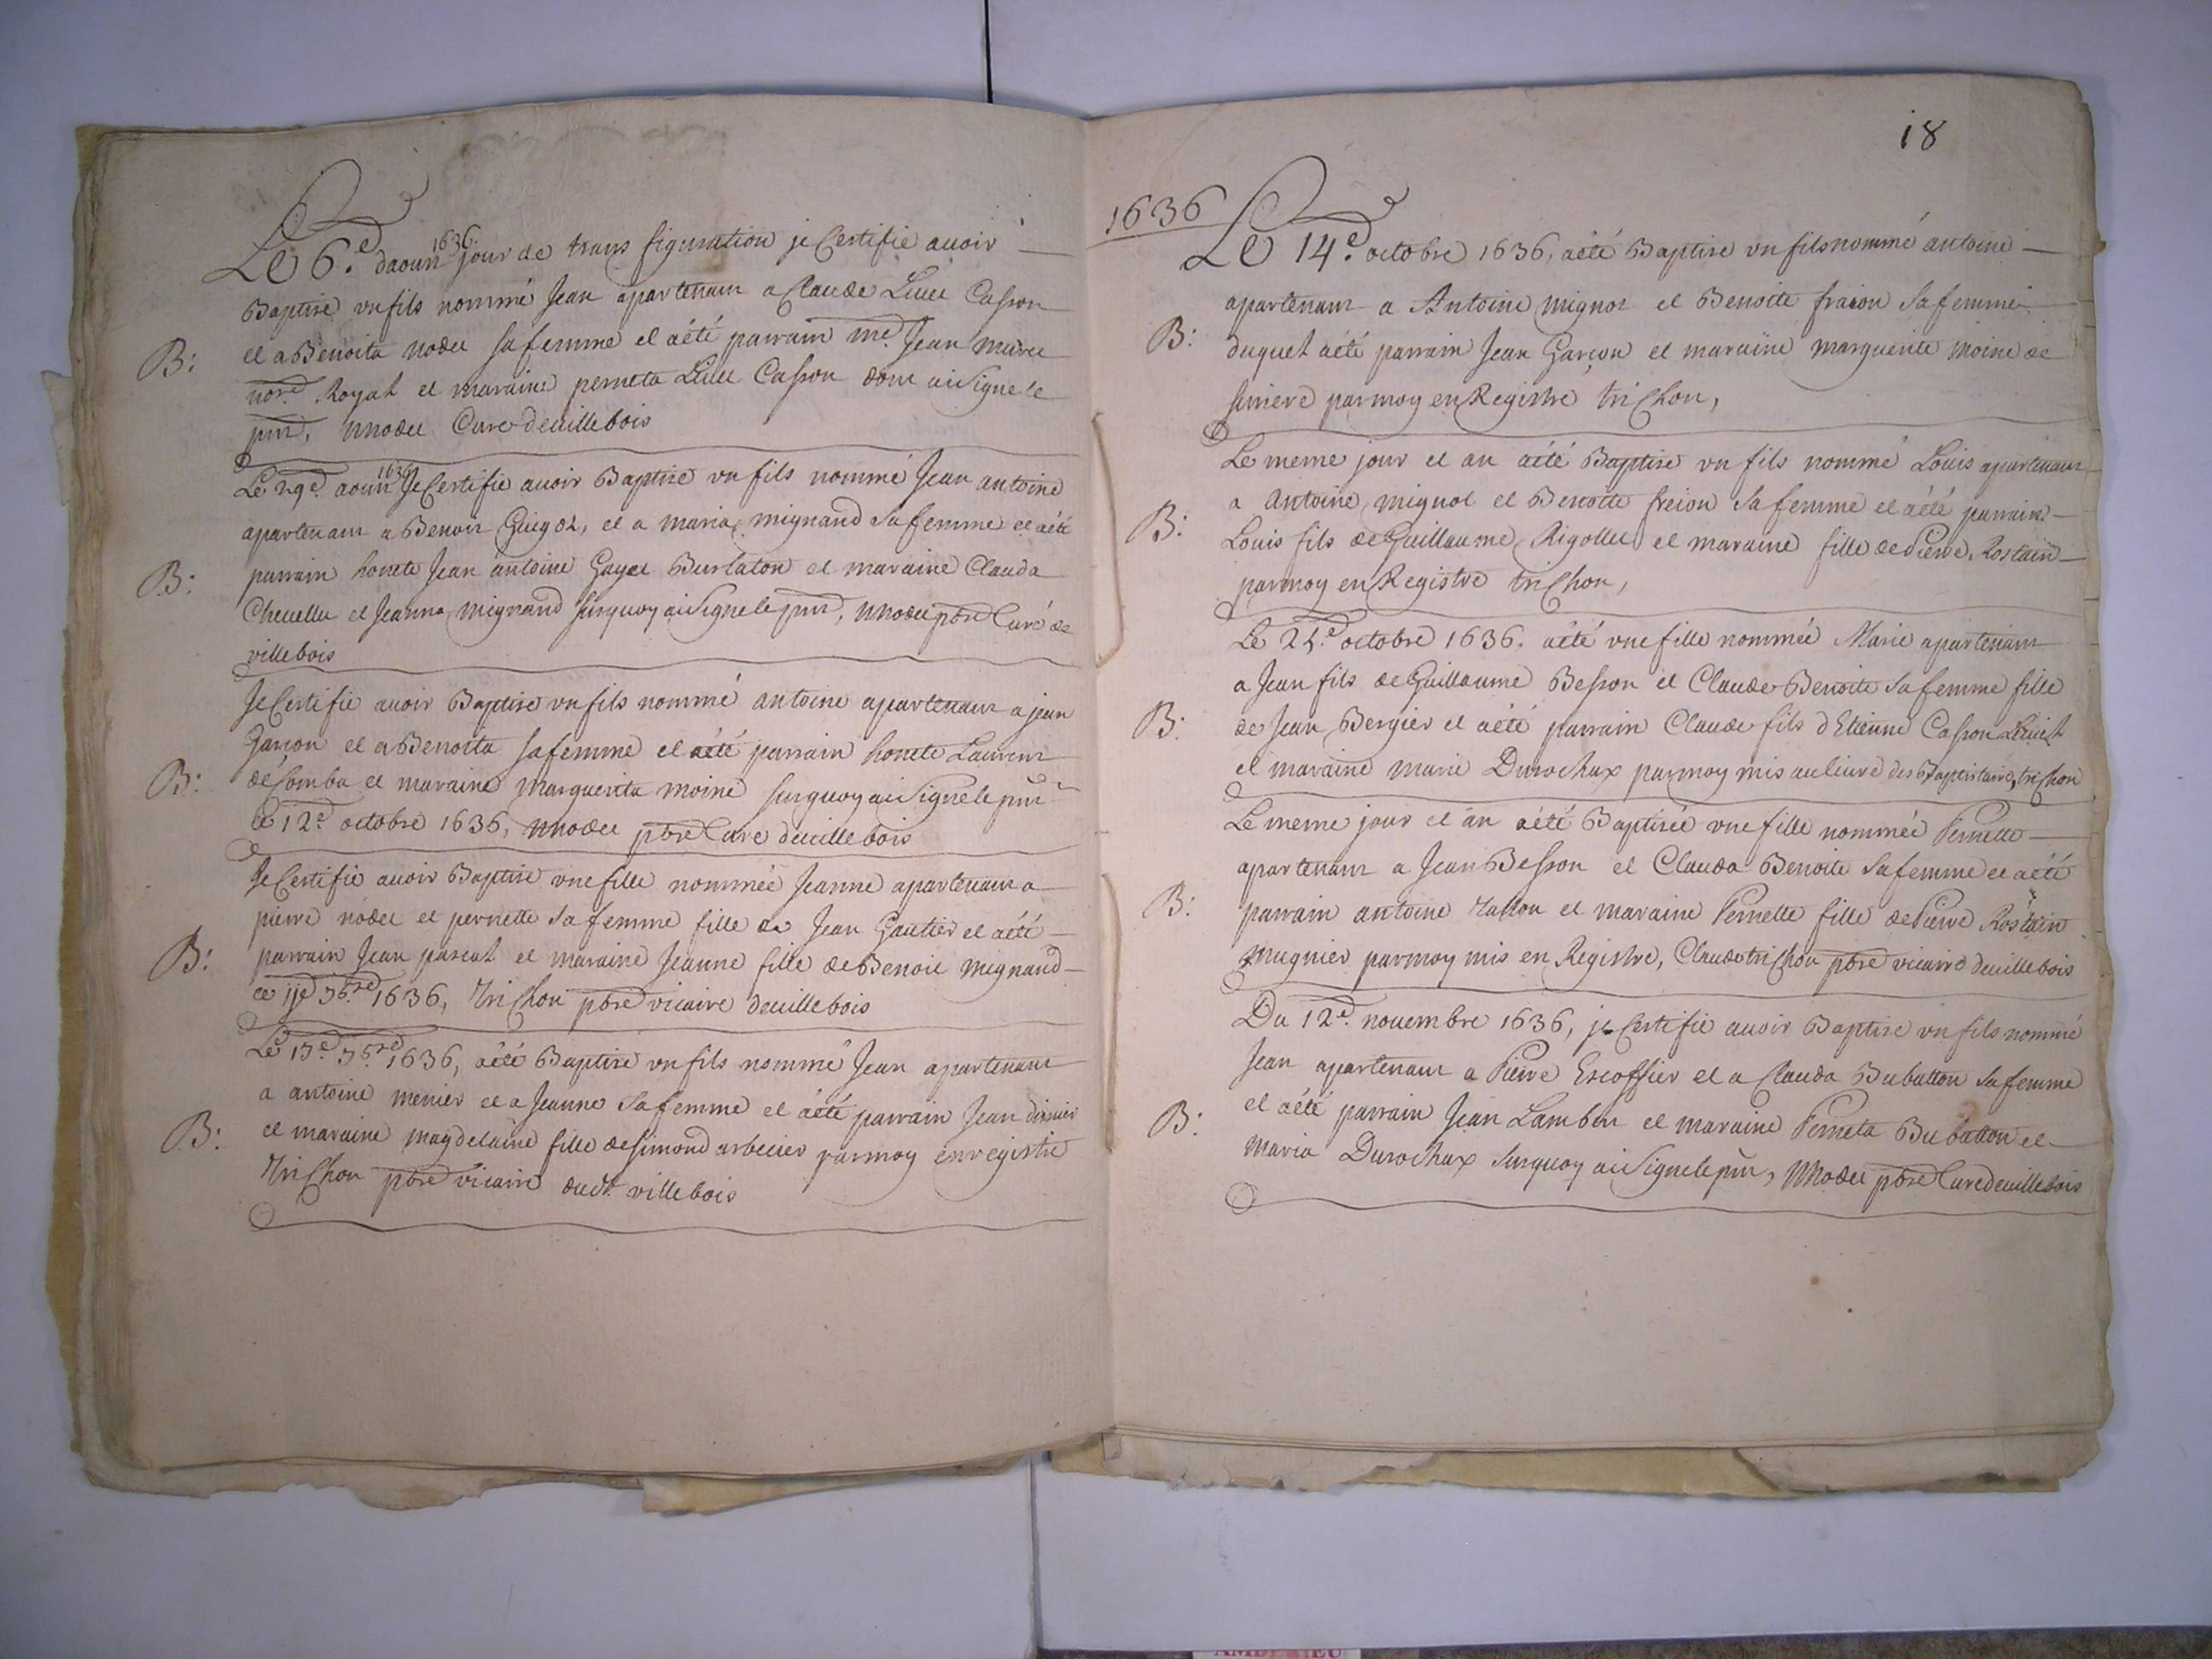 Le 6.e daoun 1636. jour de trans figuration je Certifie auoir
Baptise vn fils nommé Jean apartenant a Claude Liuet Casson
B: et a Benoita nodet sa femme et aété parrain me. Jean
nore. Royal et maraine perneta Liuet Casson dont ai signe le
pnt, Nnodet Curé deuillebois
Le 29e. aoun 1636 Je Certifie auoir Baptise vn fils nommé Jean antoine
apartenant a Benoit Guigot, et a maria mignand sa femme et aété
B: parrain honete Jean antoine Gayet Burlaton et maraine Clauda
Cheuellu et Jeanna mignand surquoy ai signe le pnt, Nnodet pbre Curé de
villebois
Je Certifie auoir Baptise vn fils nommé antoine apartenant a jean
Garçon et a Benoita sa femme et aété parrain honete Laurent
B: décomba et maraine marguerita moine surquoy ai signe le pnt
ce 12e. octobre 1636, Nnodet pbre Cure deuillebois
Je Certifie auoir Baptise vne fille nommée Jeanne apartenant a
pierre nodet et pernette sa femme fille de Jean Gautier et aété
B: parrain Jean pascal et maraine Jeanne fille de Benoit mignand
ce 1636, trichon pbre vicaire deuillebois
Le 1636, aété Baptise vn fils nommé Jean apartenant
a antoine menier et a Jeanne sa femme et aété parrain Jean
B: et maraine magdelaine fille de simond arbeiier parmoy enregistré
trichon pbre vicaire dudt. villebois
18
1636
Le 14e. octobre 1636, aété Baptise vn fils nommé antoine
apartenant a Antoine mignot et Benoite fraion sa femme
B: duquel aété parrain Jean Garçon et maraine marguerite moine de
parmoy en Registré trichon,
Le meme jour et an aété Baptise vn fils nommé Louis apartenant
a Antoine mignot et Benoite freion sa femme et aété parrain
B: Louis fils de Guillaume Rigollet et maraine fille de Pierre Rostain
parmoy en Registré trichon,
Le 25.e octobre 1636. aété vne fille nommée Marie apartenant
a Jean fils de Guillaume Besson et Claude Benoite sa femme fille
B: de Jean Bergier et aété parrain Claude fils d'Etienne Casson Leuiet
et maraine marie Durochax parmoy mis au liure des Baptistaires, trichon
Le meme jour et an aété Baptisée vne fille nommée Pernette
apartenant a Jean Besson et Clauda Benoite sa femme et aété
B: parrain antoine tallon et maraine Pernette fille de Pierre Rostain
mugnier parmoy mis en Registre, Claude trichon pbre vicaire deuillebois
Du 12e. nouembre 1636, je Certifie auoir Baptise vn fils nommé
Jean apartenant a Pierre Escoffier et a Clauda Bubatton sa femme
B: et aété parrain Jean Lambin et maraine Perneta Bubatton et
Maria Durochax surquoy ai signe le pnt, Nnodet pbre Cure deuillebois